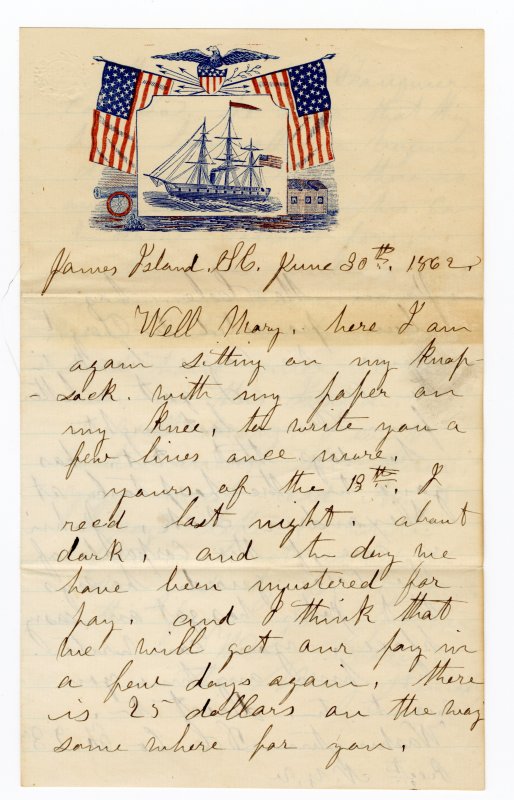 James Island, S.C. June 30th. 1862.
Well Mary. here I am
again sitting on my knap-
-sack. with my paper on
my knee, to write you a
few lines once more.
yours of the 13th. I
recd last night. about
dark. and to day we
have been mustered for
pay. and I think that
we will get our pay in
a few days again. there
is 25 dollars on the way
some where for you.